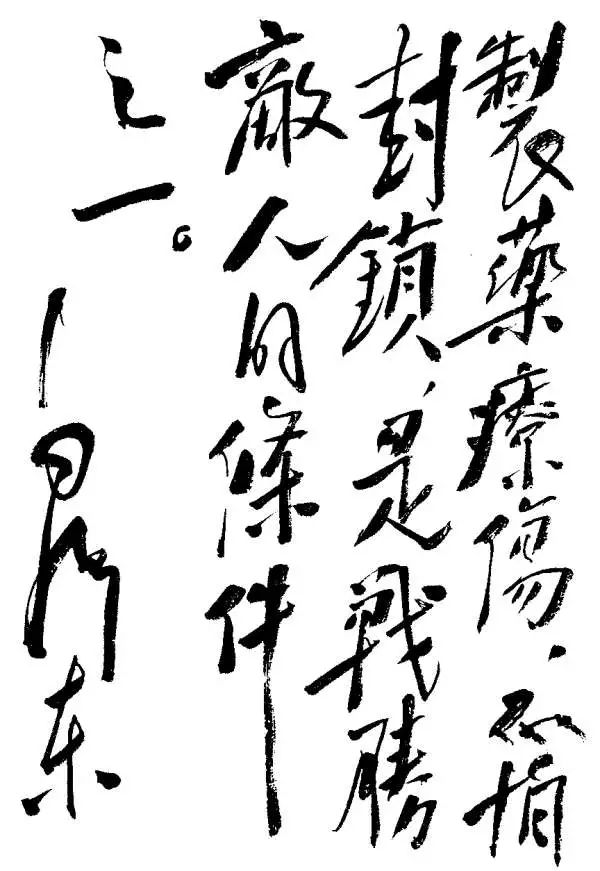 製藥療傷、不怕
封鎖、是戰勝
敵人的條件
之一。
—毛澤東